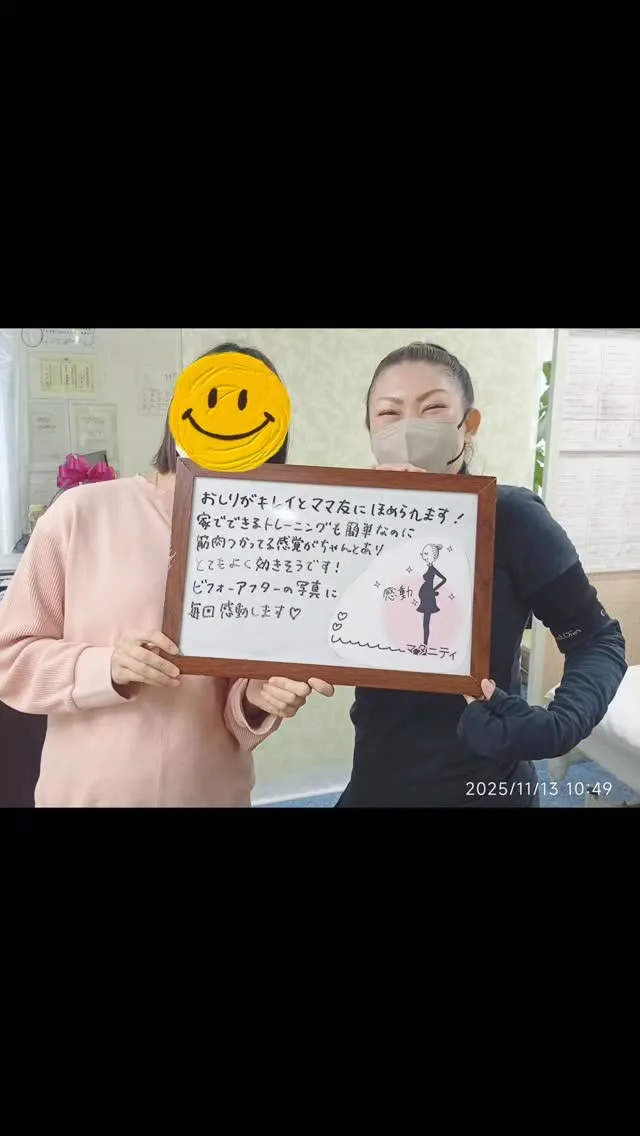 おしりがキレイとママ友にほめられます!
家でできるトレーニングも簡単なのに
筋肉つかってる感覚がちゃんとあり
とてもよく効きそうです!
ビフォーアフターの写真に
毎回感動します♡
感動
マタニティ
2025/11/13 10:49